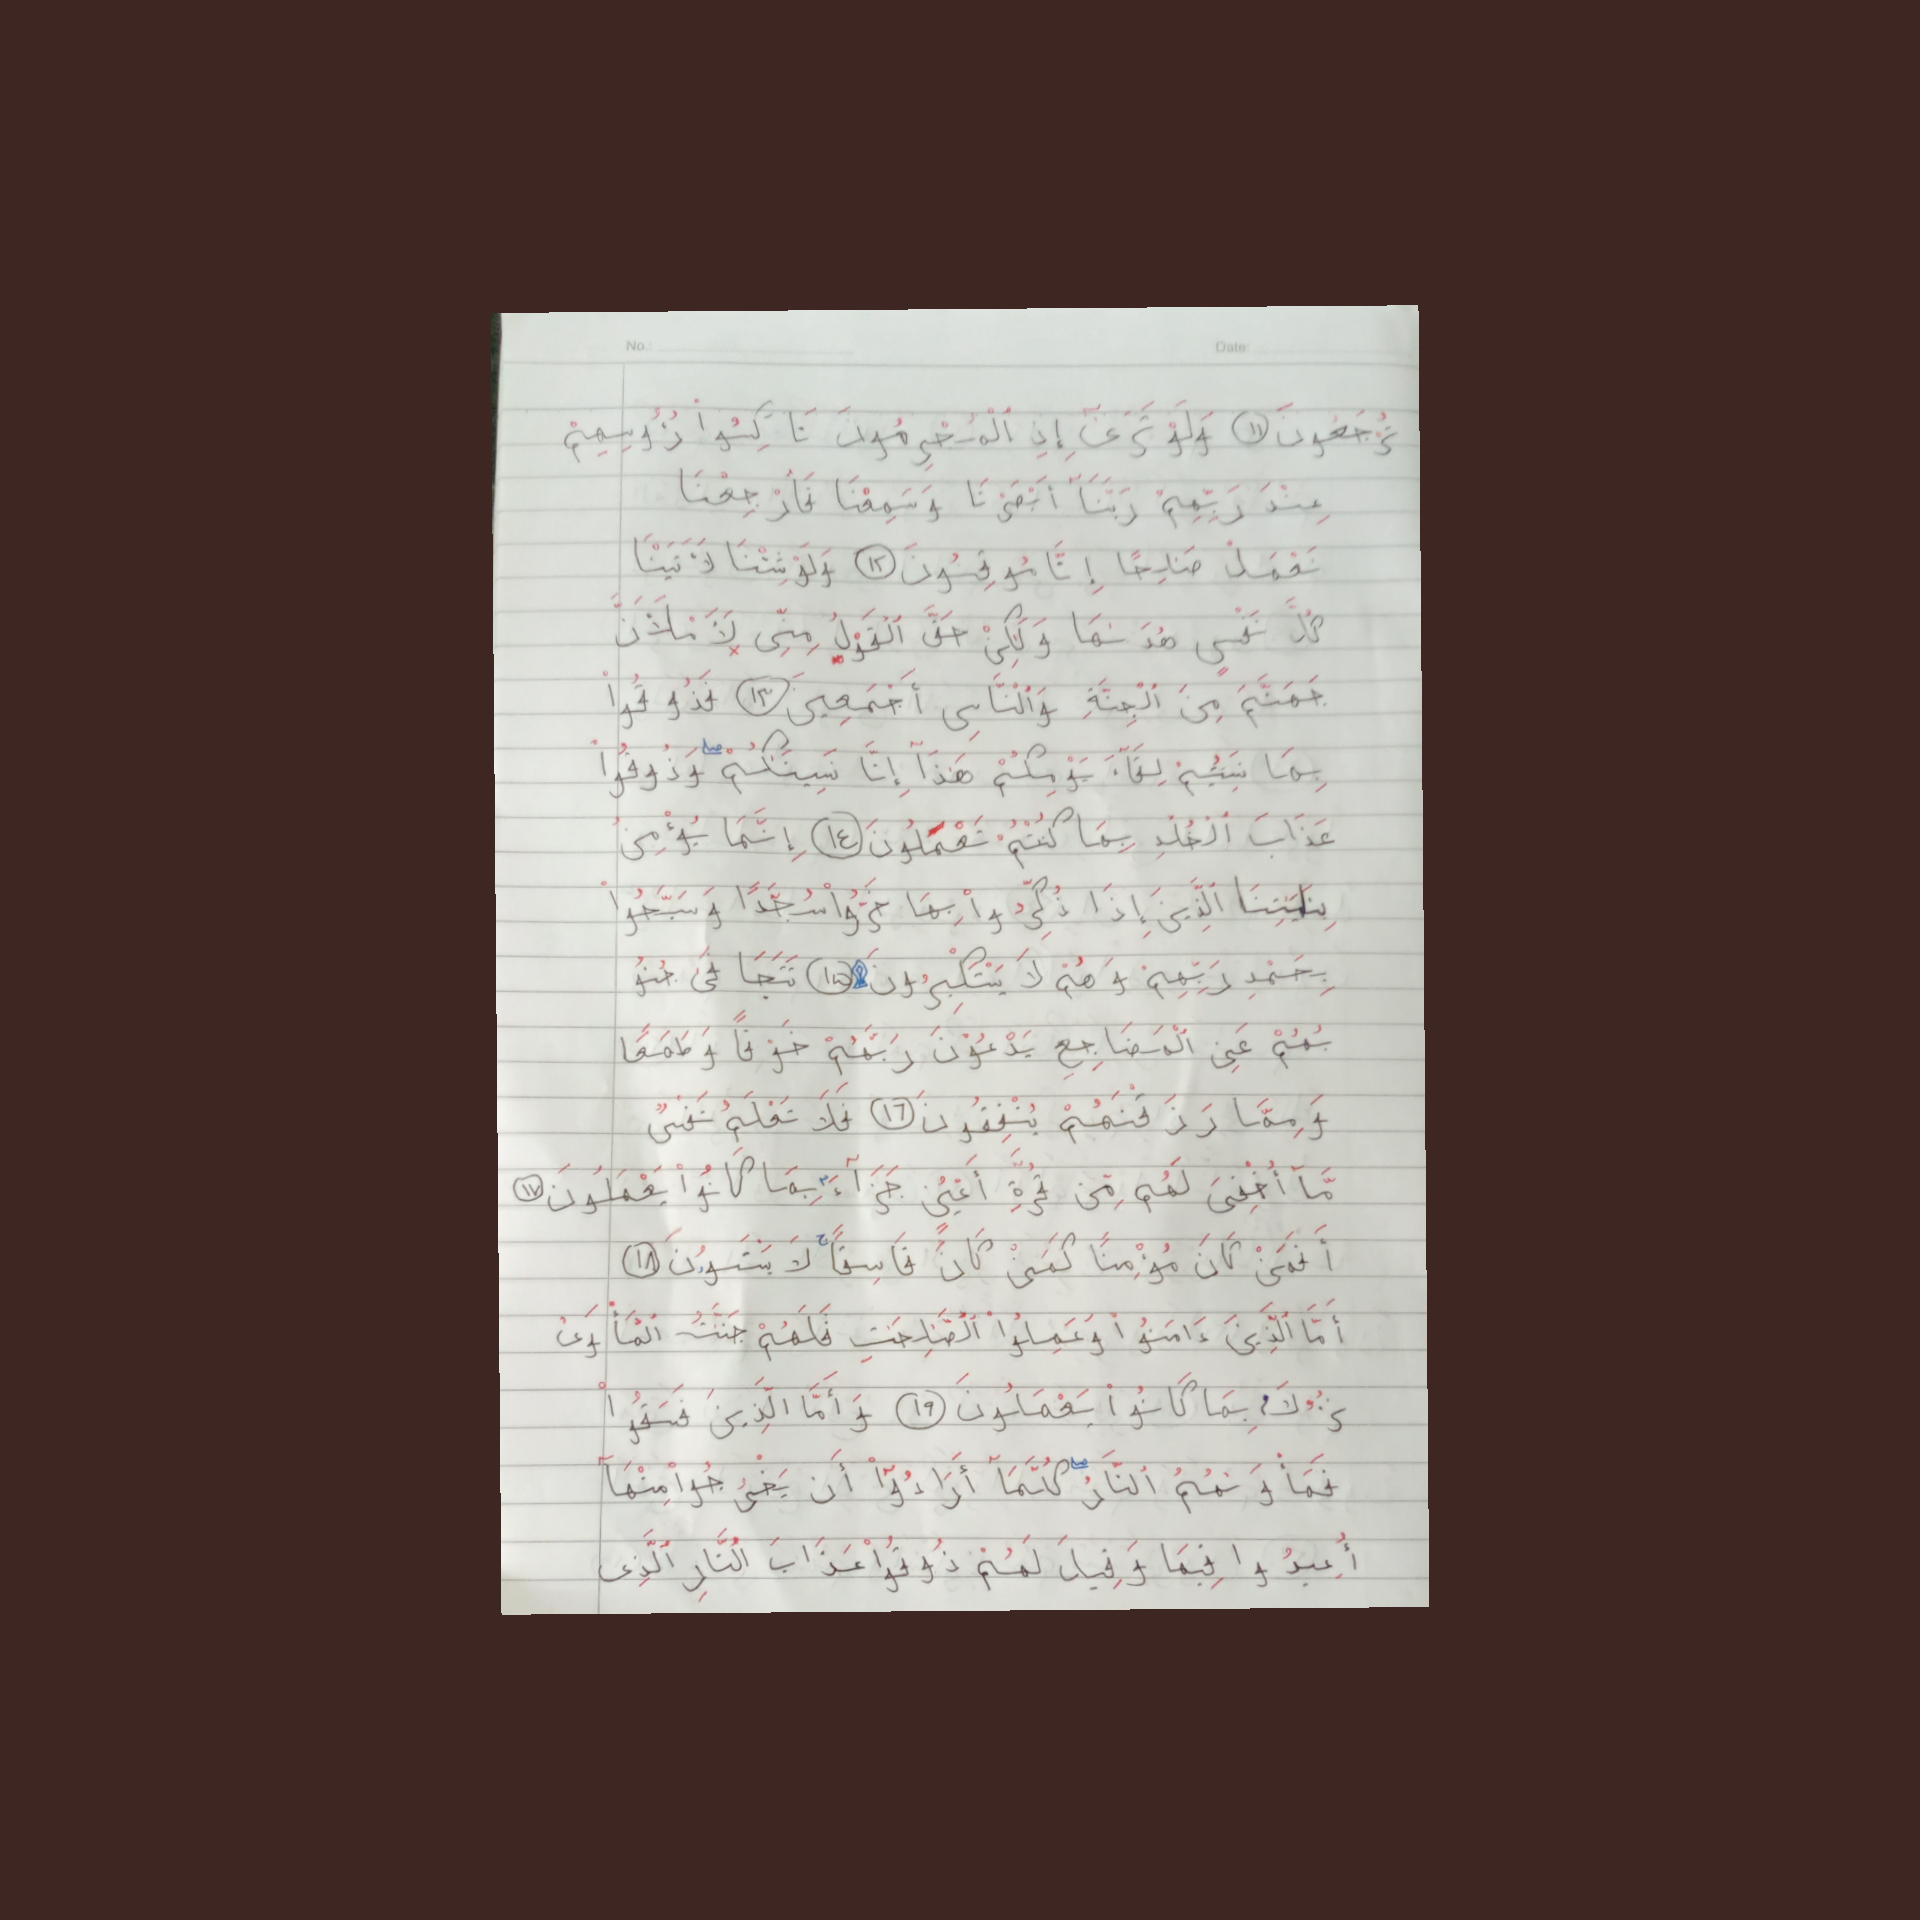 No.: Date:
تُرْجَعُونَ ١١ وَلَوْ تَرَىٰٓ إِذِ ٱلْمُجْرِمُونَ نَاكِسُوا۟ رُءُوسِهِمْ
عِندَ رَبِّهِمْ رَبَّنَآ أَبْصَرْنَا وَسَمِعْنَا فَٱرْجِعْنَا
نَعْمَلْ صَٰلِحًا إِنَّا مُوقِنُونَ ١٢ وَلَوْ شِئْنَا لَءَاتَيْنَا
كُلَّ نَفْسٍ هُدَىٰهَا وَلَٰكِنْ حَقَّ ٱلْقَوْلُ مِنِّى لَأَمْلَأَنَّ
جَهَنَّمَ مِنَ ٱلْجِنَّةِ وَٱلنَّاسِ أَجْمَعِينَ ١٣ فَذُوقُوا۟
بِمَا نَسِيتُمْ لِقَآءَ يَوْمِكُمْ هَٰذَآ إِنَّا نَسِينَٰكُمْ ۖ وَذُوقُوا۟
عَذَابَ ٱلْخُلْدِ بِمَا كُنتُمْ تَعْمَلُونَ ١٤ إِنَّمَا يُؤْمِنُ
بِـَٔايَٰتِنَا ٱلَّذِينَ إِذَا ذُكِّرُوا۟ بِهَا خَرُّوا۟ سُجَّدًا وَسَبَّحُوا۟
بِحَمْدِ رَبِّهِمْ وَهُمْ لَا يَسْتَكْبِرُونَ ۩ ١٥ تَتَجَافَىٰ جُنُو
بُهُمْ عَنِ ٱلْمَضَاجِعِ يَدْعُونَ رَبَّهُمْ خَوْفًا وَطَمَعًا
وَمِمَّا رَزَقْنَٰهُمْ يُنفِقُونَ ١٦ فَلَا تَعْلَمُ نَفْسٌ
مَّآ أُخْفِىَ لَهُم مِّن قُرَّةِ أَعْيُنٍ جَزَآءًۢ بِمَا كَانُوا۟ يَعْمَلُونَ ١٧
أَفَمَن كَانَ مُؤْمِنًا كَمَن كَانَ فَاسِقًا ۚ لَا يَسْتَوُۥنَ ١٨
أَمَّا ٱلَّذِينَ ءَامَنُوا۟ وَعَمِلُوا۟ ٱلصَّٰلِحَٰتِ فَلَهُمْ جَنَّٰتُ ٱلْمَأْوَىٰ
نُزُلًۢا بِمَا كَانُوا۟ يَعْمَلُونَ ١٩ وَأَمَّا ٱلَّذِينَ فَسَقُوا۟
فَمَأْوَىٰهُمُ ٱلنَّارُ ۖ كُلَّمَآ أَرَادُوٓا۟ أَن يَخْرُجُوا۟ مِنْهَآ
أُعِيدُوا۟ فِيهَا وَقِيلَ لَهُمْ ذُوقُوا۟ عَذَابَ ٱلنَّارِ ٱلَّذِى